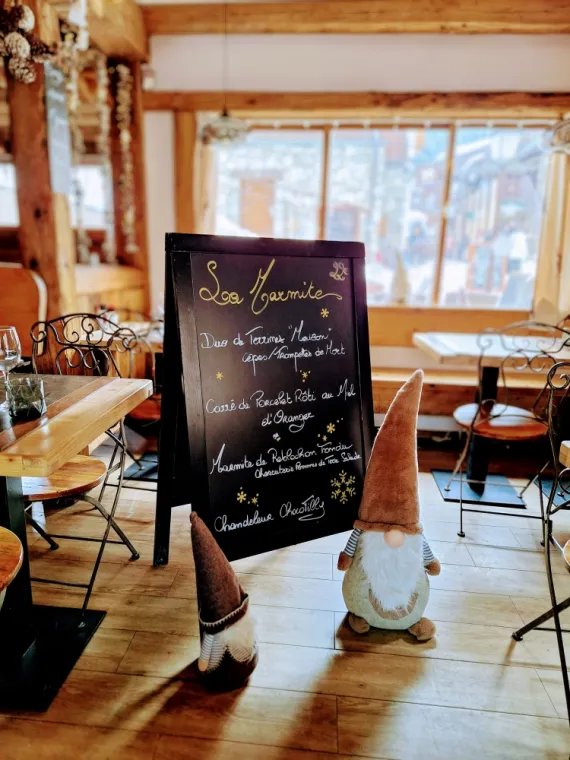 La Marmite
Duo de Terrines "Maison"
cèpes/Trompettes de Mort
Carré de Porcelet Rôti au Miel
d'Oranger
Marmite de Reblochon Fondu
Charcuterie Pommes de Terre Salade
Chandeleur Chocotilly